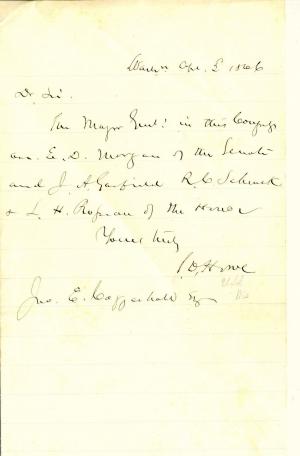 Washn Apr. 5 1866
Dr Sir.
The Major Genls in this Congress
are E. D. Morgan of the Senate
and J. A Garfield R. C Schenck
& L. H. Rousseau of the House
Yours truly
T. O. Howe
Jno. E. Copperhall Esq